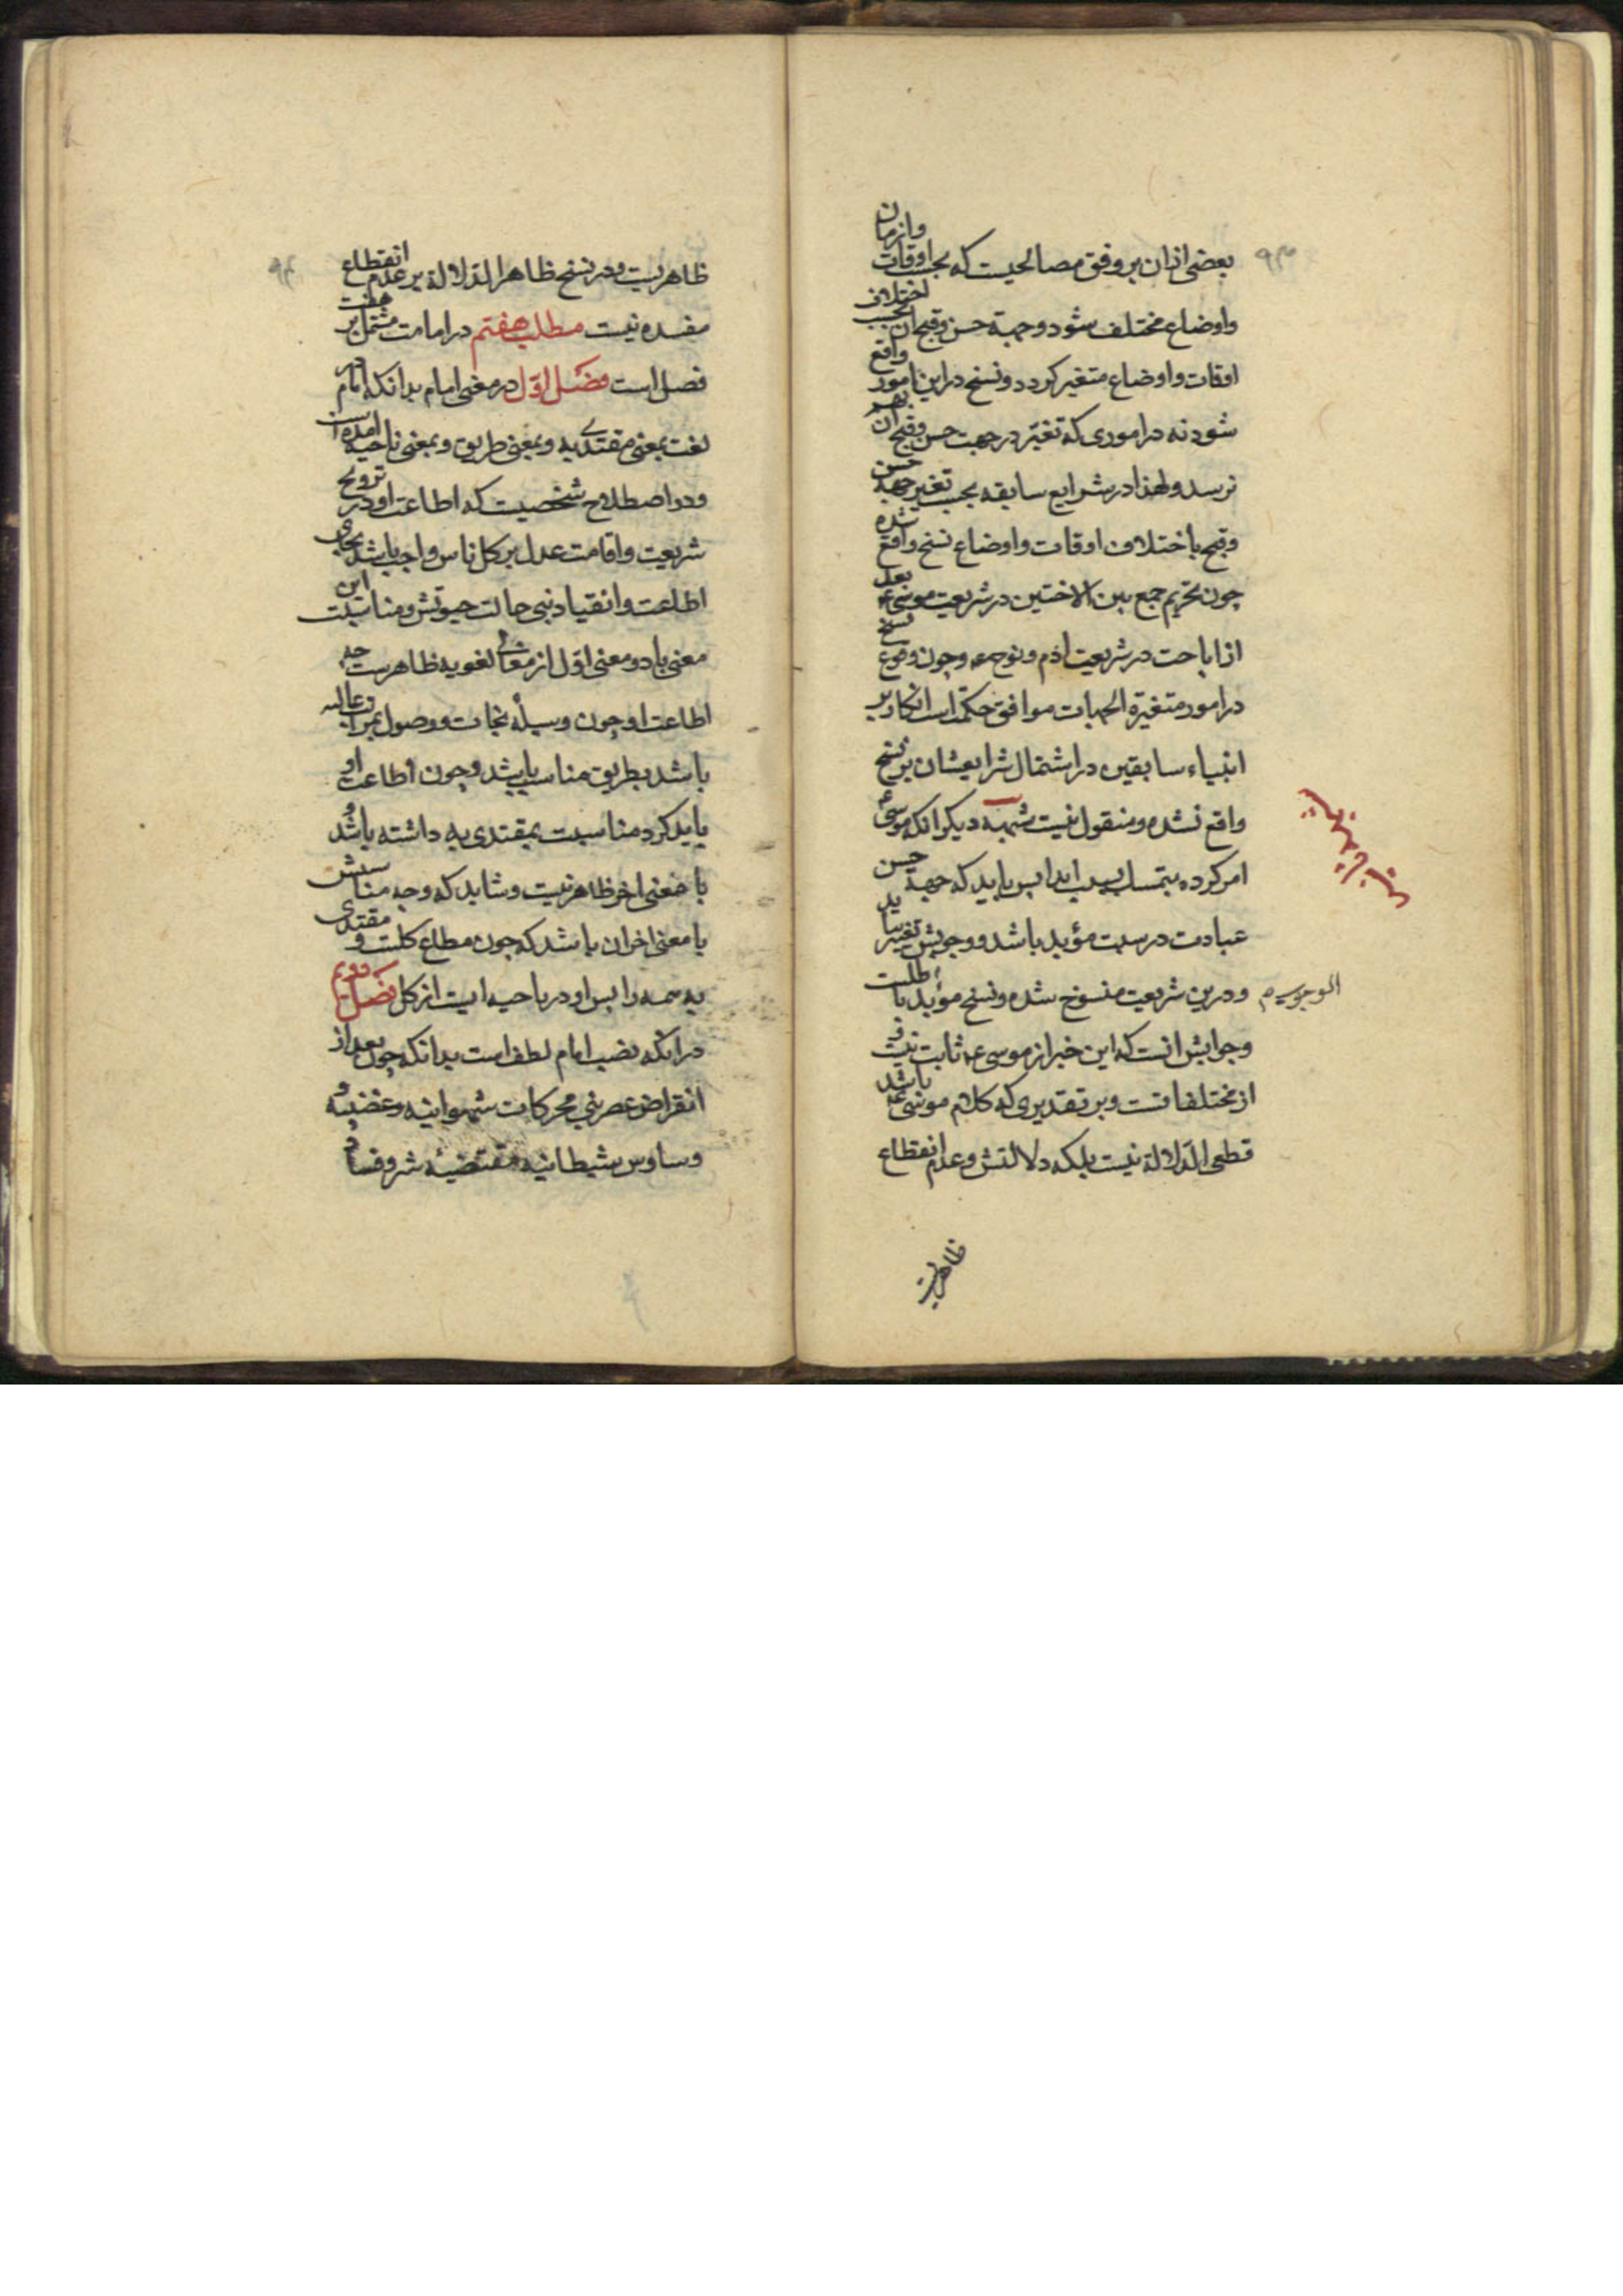 بعضی ازان بر وفق مصالحیست که بحسب اوقات وازمان
واوضاع مختلف شود وجهة حسن وقبح ان بحسب اختلاف
اوقات واوضاع متغیر کردد ونسخ دراین امور واقع
شود نه در اموری که تغیّر در جهت حسن وقبح آن بهم
نرسد ولهذا در شرایع سابقه بحسب تغیر جهة حسن
وقبح باختلاف اوقات واوضاع نسخ واقع شده
چون تحریم جمع بین الاختین در شریعت موسی ع بعد
از اباحت در شریعت ادم ونوح ع وچون وقوع نسخ
در امور متغیرة الجهات موافق حکمت است انکار بر
انبیاء سابقین در اشتمال شرایعشان بر نسخ
واقع نشده ومنقول نیست شبهه دیکر انکه موسی ع
امر کرده بتمسک بسبت ابدا پس باید که جهة حسن
عبادت در سبت مؤبد باشد ووجوبش تغییر نیابد
ودرین شریعت منسوخ شده ونسخ مؤبد باطلست
وجوابش انست که این خبر از موسی ع ثابت نیست
از مختلفاتست وبر تقدیری که کلام موسی ع باشد
قطعی الدّلالة نیست بلکه دلالتش وعدم انقطاع
ظاهریست
ظاهریست ودر نسخ ظاهر الدّلالة بر عدم انقطاع
مفسده نیست مطلب هفتم در امامت مشتمل بر هفت
فصل است فصل اوّل در معنی امام بدانکه امام در
لغت بمعنی مقتدی به وبمعنی طریق وبمعنی ناحیه امده است
ودر اصطلاح شخصیست که اطاعت او در ترویج
شریعت واقامت عدل بر کل ناس واجب باشد بجای
اطاعت وانقیاد نبی حالت حیوتش ومناسبت این
معنی با دو معنی اوّل از معانی لغویه ظاهرست چه
اطاعت او چون وسیلهٔ نجات ووصول بمراتب عالیه
باشد بطریق مناسب باشد وچون اطاعت او
باید کرد مناسبت بمقتدی به داشته باشد و
با معنی اخر ظاهر نیست وشاید که وجه مناسبتش
با معنی اخر ان باشد که چون مطاع کلست ومقتدی
به همه را پس او در ناحیه ایست از کل فصل دویم
در انکه نصب امام لطف است بدانکه چون بعد از
انقراض عصر نبی محرکات شهوانیه وغضبیه و
وساوس شیطانیه مقتضیه شر وفساد